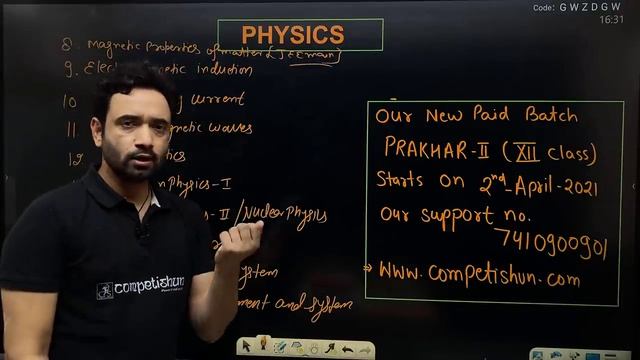 Code: GWZDGW
16:31
PHYSICS
8. Magnetic Properties of matter (JEE main)
9. Elect netic induction
10 current
11 netic waves
12 tics
n Physics-I
s-II / Nuclear Physics
ystem
ment and system
Our New Paid Batch
PRAKHAR-II (XII class)
Starts On 2nd-April-2021
Our support no.
7410900901
⇒ www.competishun.com
competishun